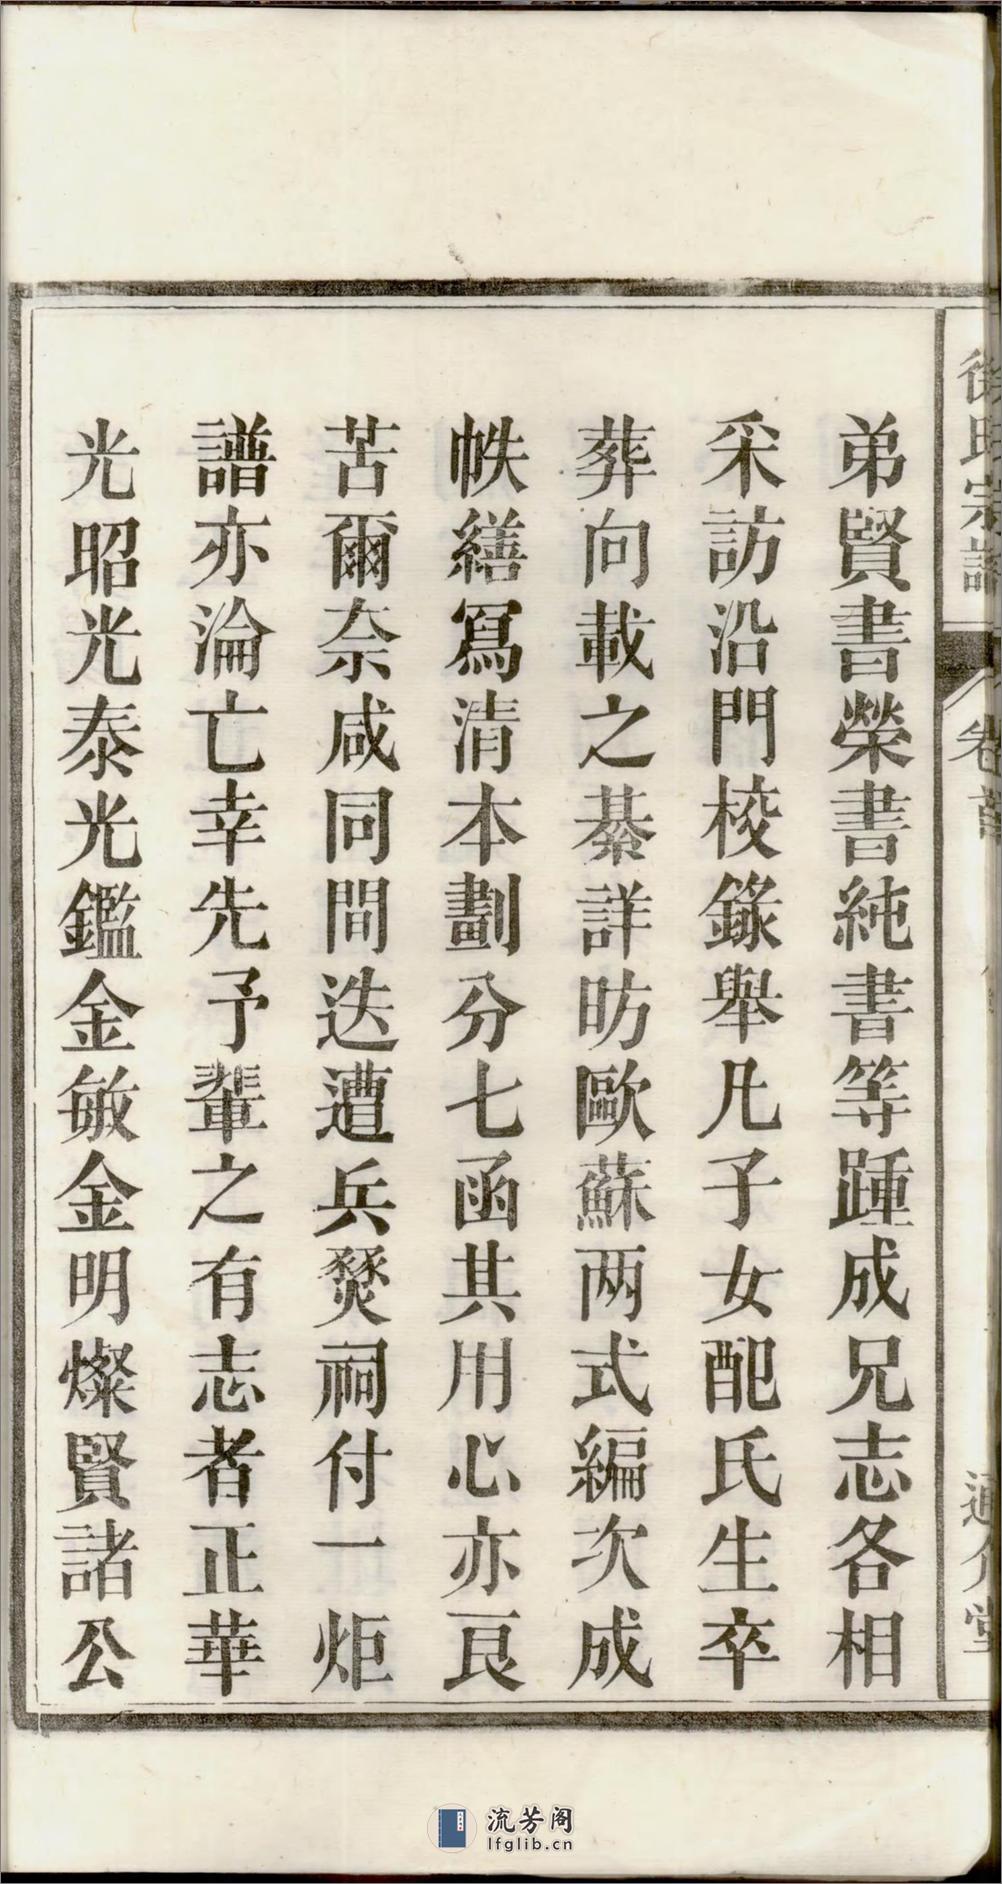 弟賢書榮書純書等踵成兄志各相
采訪沿門校錄舉凡子女配氏生卒
葬向載之綦詳昉歐蘇两式編次成
帙繕寫清本劃分七函其用心亦良
苦爾奈咸同間迭遭兵燹祠付一炬
譜亦淪亡幸先予輩之有志者正華
光昭光泰光鑑金敏金明燦賢諸公
流芳阁
lfglib.cn